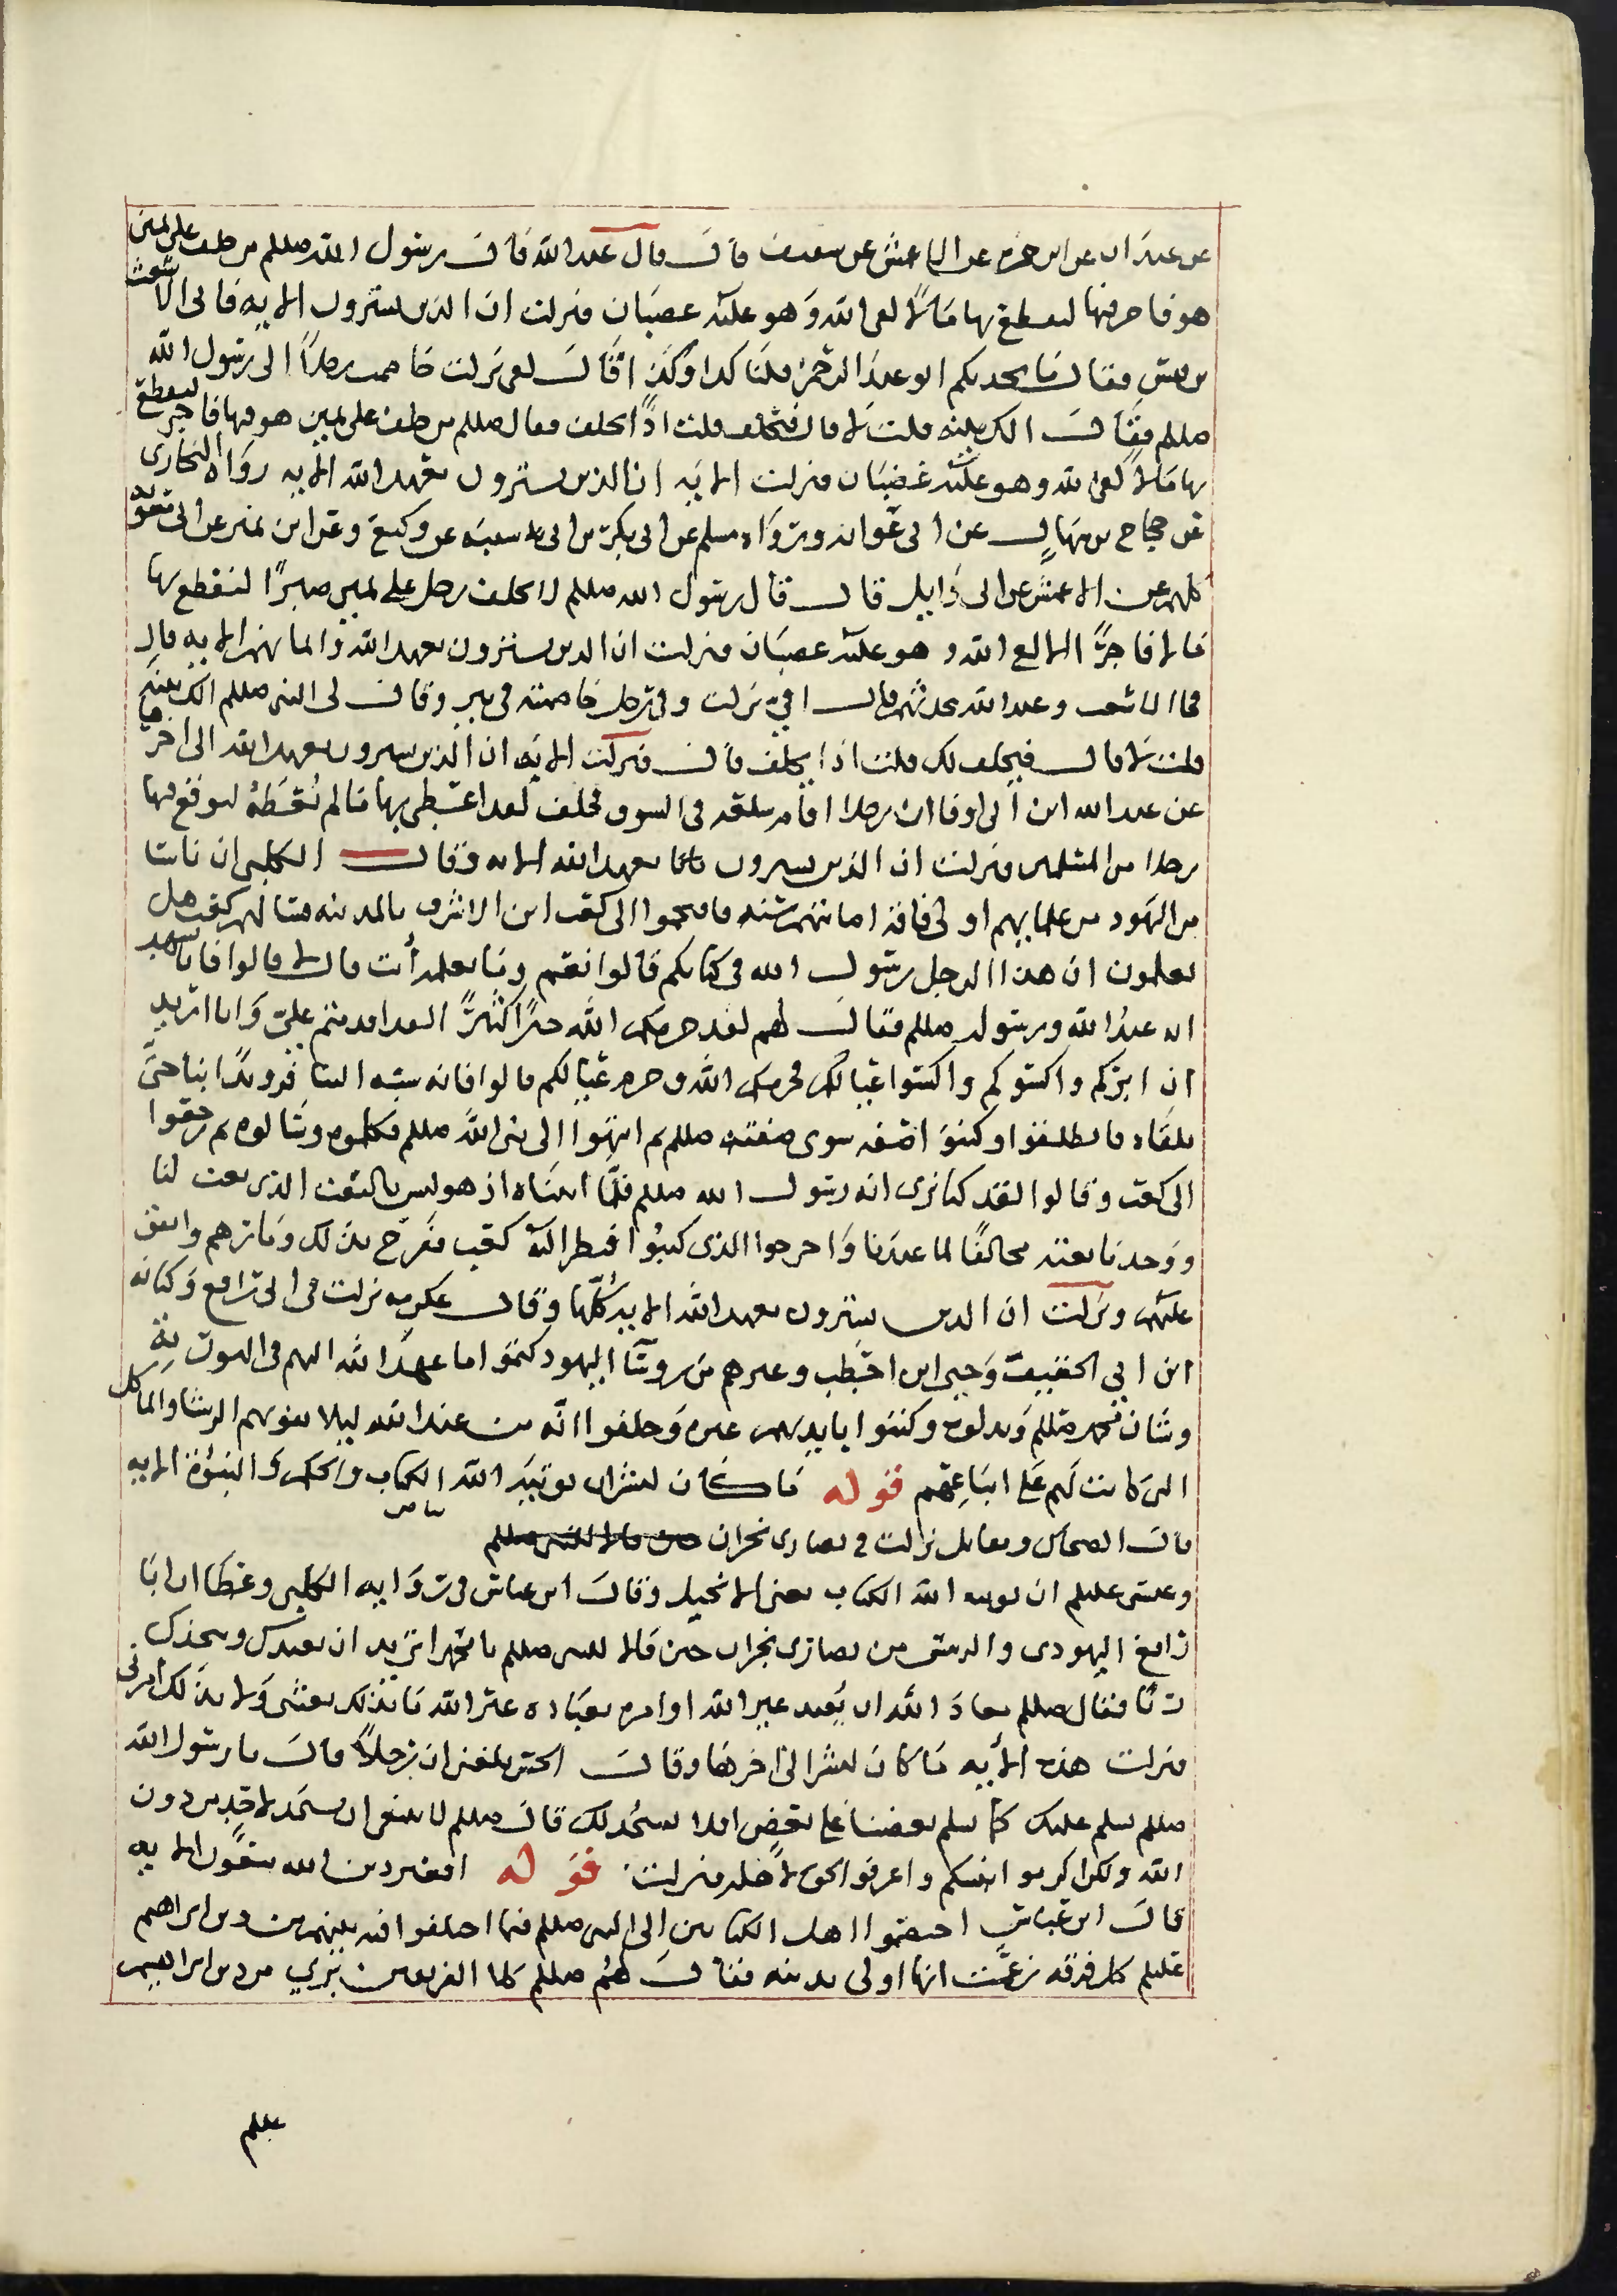 عن عبدان عن ابى حمزه عن الاعمش عن سعيف قال قال عبدالله قال رسول الله صللم من حلف على يمين
هو فاجر فيها ليقطع بها مالا لقى الله وهو عليه غضبان فنزلت ان الذين يشترون الايه فاتى الاشعث
بن قيس فقال ما يحدثكم ابو عبد الرحمن قلنا كذا وكذا قال لفى نزلت خاصمت رجلا الى رسول الله
صللم فقال الك بينه قلت لا قال فيحلف قلت اذا يحلف فقال صللم من حلف على يمين هو فيها فاجر ليقطع
بها مالا لقى الله وهو عليه غضبان فنزلت الايه ان الذين يشترون بعهد الله الايه رواه البخارى
عن حجاج بن منهال عن ابى عوانه ورواه مسلم عن ابى بكر بن ابى شيبه عن وكيع وعن ابن نمير عن ابى معويه
كلهم عن الاعمش عن ابى وايل قال قال رسول الله صللم لا يحلف رجل على يمين صبرا ليقطع بها
مالا فاجرا الا لقى الله وهو عليه غضبان فنزلت ان الذين يشترون بعهد الله وايمانهم الايه قال
فجا الاشعث وعبد الله يحدثهم قال فى نزلت وفى رجل خاصمته فى بير وقال لى النبى صللم الك بينه
قلت لا قال فيحلف لك قلت اذا يحلف قال فنزلت الايه ان الذين يشترون بعهد الله الى اخرها
عن عبد الله ابن ابى اوفا ان رجلا اقام سلعه فى السوق فحلف لقد اعطى بها ما لم يعطه ليوقع فيها
رجلا من المسلمين فنزلت ان الذين يشترون بعهد الله الايه وقال الكلبى ان ناسا
من اليهود من علمايهم اولى فاقه اصابتهم سنه فاقتحموا الى كعب ابن الاشرف بالمدينه فسالهم كعب هل
تعلمون ان هذا الرجل رسول الله فى كتابكم قالوا نعم وما تعلمه أنت قال لا قالوا فانا نشهد
انه عبد الله ورسوله صللم فقال لهم لقد حرمكم الله خيرا كثيرا لقد قدمتم على وانا اريد
ان ابركم واكسوكم واكسوا عيالكم فحرمكم الله وحرم عيالكم قالوا فانه شبه لنا فرويدا بنا حتى
نلقاه فانطلقوا وكتبوا صفه سوى صفته صللم ثم انتهوا الى نبى الله صللم فكلموه وسالوه ثم رجعوا
الى كعب وقالوا لقد كنا نرى انه رسول الله صللم فلما اتيناه اذ هو ليس بالنعت الذى نعت لنا
ووجدنا نعته مخالفا لما عندنا واخرجوا الذى كتبوا فنظر اليه كعب ففرح بذلك ومارهم وانفق
عليهم ونزلت ان الذين يشترون بعهد الله الايه كلها وقال عكرمه نزلت فى ابى رافع وكنانه
ابن ابى الحقيق وحيى ابن اخطب وغيرهم من روسا اليهود كتموا ما عهد الله اليهم فى التوريه
وشان محمد صللم وبدلوه وكتبوا بايديهم غيره وحلفوا انه من عند الله ليلا يفوتهم الرشا والماكل
التى كانت لهم على اتباعهم قوله ما كان لبشر ان يوتيه الله الكتاب والحكم والنبوة الايه
قال الضحاك ومقاتل نزلت فى نصارى نجران
وعيسى عللم ان يوتيه الله الكتاب يعنى الانجيل وقال ابن عباس فى روايه الكلبى وعطا ان ابا
رافع اليهودى والرييس من نصارى نجران حين قالا للنبى صللم يا محمد اتريد ان نعبدك ونتخذك
ربا فقال صللم معاذ الله ان يعبد غير الله او امر بعباده غير الله ما بذلك بعثنى ولا بذلك أمرنى
فنزلت هذه الأيه ما كان لبشر الى اخرها وقال الحسن بلغنى ان رجلا قال يا رسول الله
صللم نسلم عليك كما يسلم بعضنا على بعض افلا نسجد لك قال صللم لا ينبغى ان يسجد لاحد من دون
الله ولكن اكرموا نبيكم واعرفوا الحق لاهله فنزلت قوله افغير دين الله يبغون الايه
قال ابن عباس اختصموا اهل الكتابين الى النبى صللم فيما اختلفوا فيه بينهم من دين ابراهيم
عللم كل فرقه زعمت انها اولى بدينه فقال لهم صللم كلا الفريقين برى من دين ابراهيم
عللم